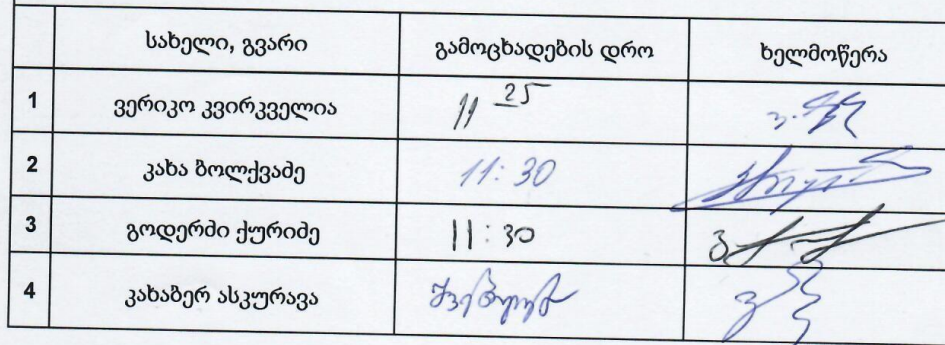 სახელი, გვარი გამოცხადების დრო ხელმოწერა
1 ვერიკო კვირკველია 11 25
2 კახა ბოლქვაძე 11:30
3 გოდერძი ქურიძე 11:30
4 კახაბერ ასკურავა